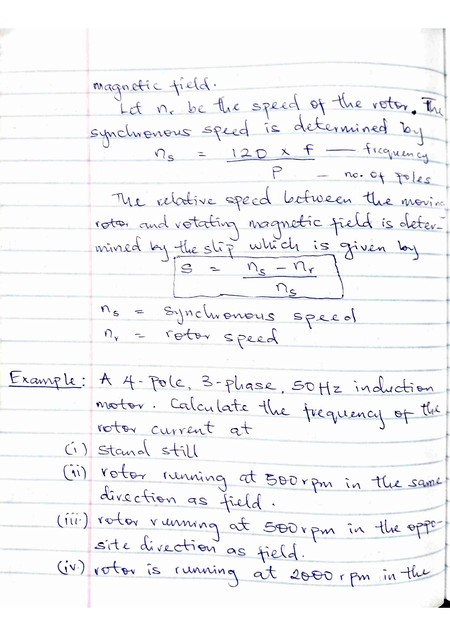 magnetic field.
Let nr be the speed of the rotor. The
synchronous speed is determined by
ns = 120 x f — frequency
P — no. of poles
The relative speed between the moving
rotor and rotating magnetic field is deter-
mined by the slip which is given by
S = ns - nr
ns
ns = synchronous speed
nr = rotor speed
Example: A 4-pole, 3-phase, 50Hz induction
motor. Calculate the frequency of the
rotor current at
(i) stand still
(ii) rotor running at 500rpm in the same
direction as field.
(iii) rotor running at 500rpm in the oppo-
site direction as field.
(iv) rotor is running at 2000 rpm in the